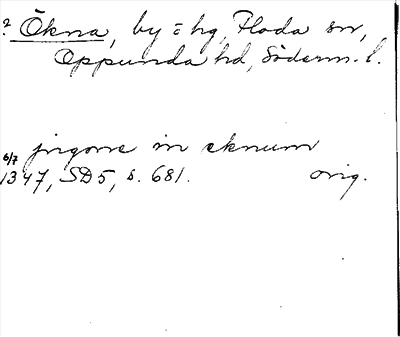 ? Ökna, by = hg, Floda sn,
Oppunda hd, Söderm. l.
jngorre in eknum
6/7
1347, SD 5, s. 681. orig.